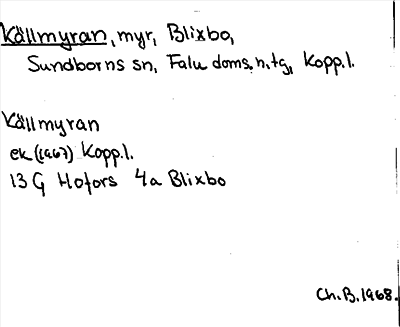 Källmyran, myr, Blixbo,
Sundborns sn, Falu doms. n. tg, Kopp.l.
Källmyran
ek (1967) Kopp.l.
13 G Hofors 4a Blixbo
Ch. B. 1968.